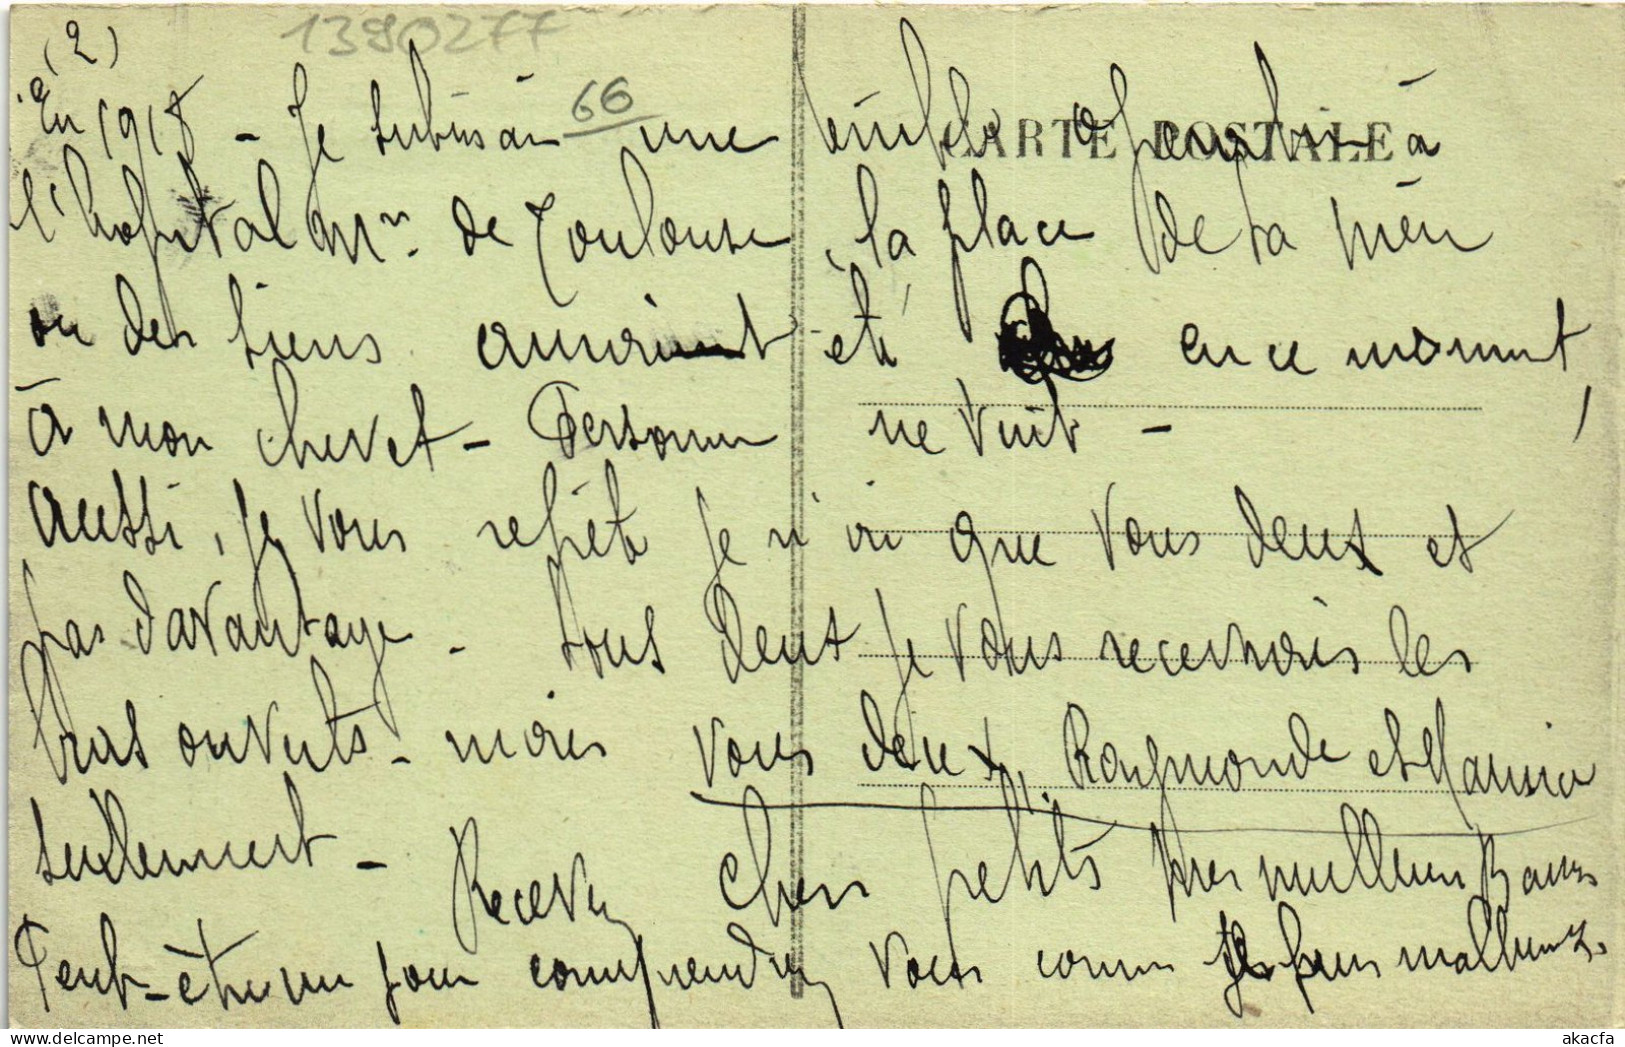 1390277
(2)
66
CARTE POSTALE
En 1918 - Je subissais une simple opération à
l'hopital Mre de Toulouse, la place de la mère
ou des siens auraient été en ce moment,
à mon chevet - Personne ne vint -
aussi, je vous repète je n'ai que vous deux et
pas davantage - tous deux je vous recevrais les
bras ouverts - mais vous deux, Raymonde et Maurice
seulement - Recevez chers petits mes meilleurs Baisers
Peut-être un jour comprendrez vous comme je suis malheureux.
akacfa